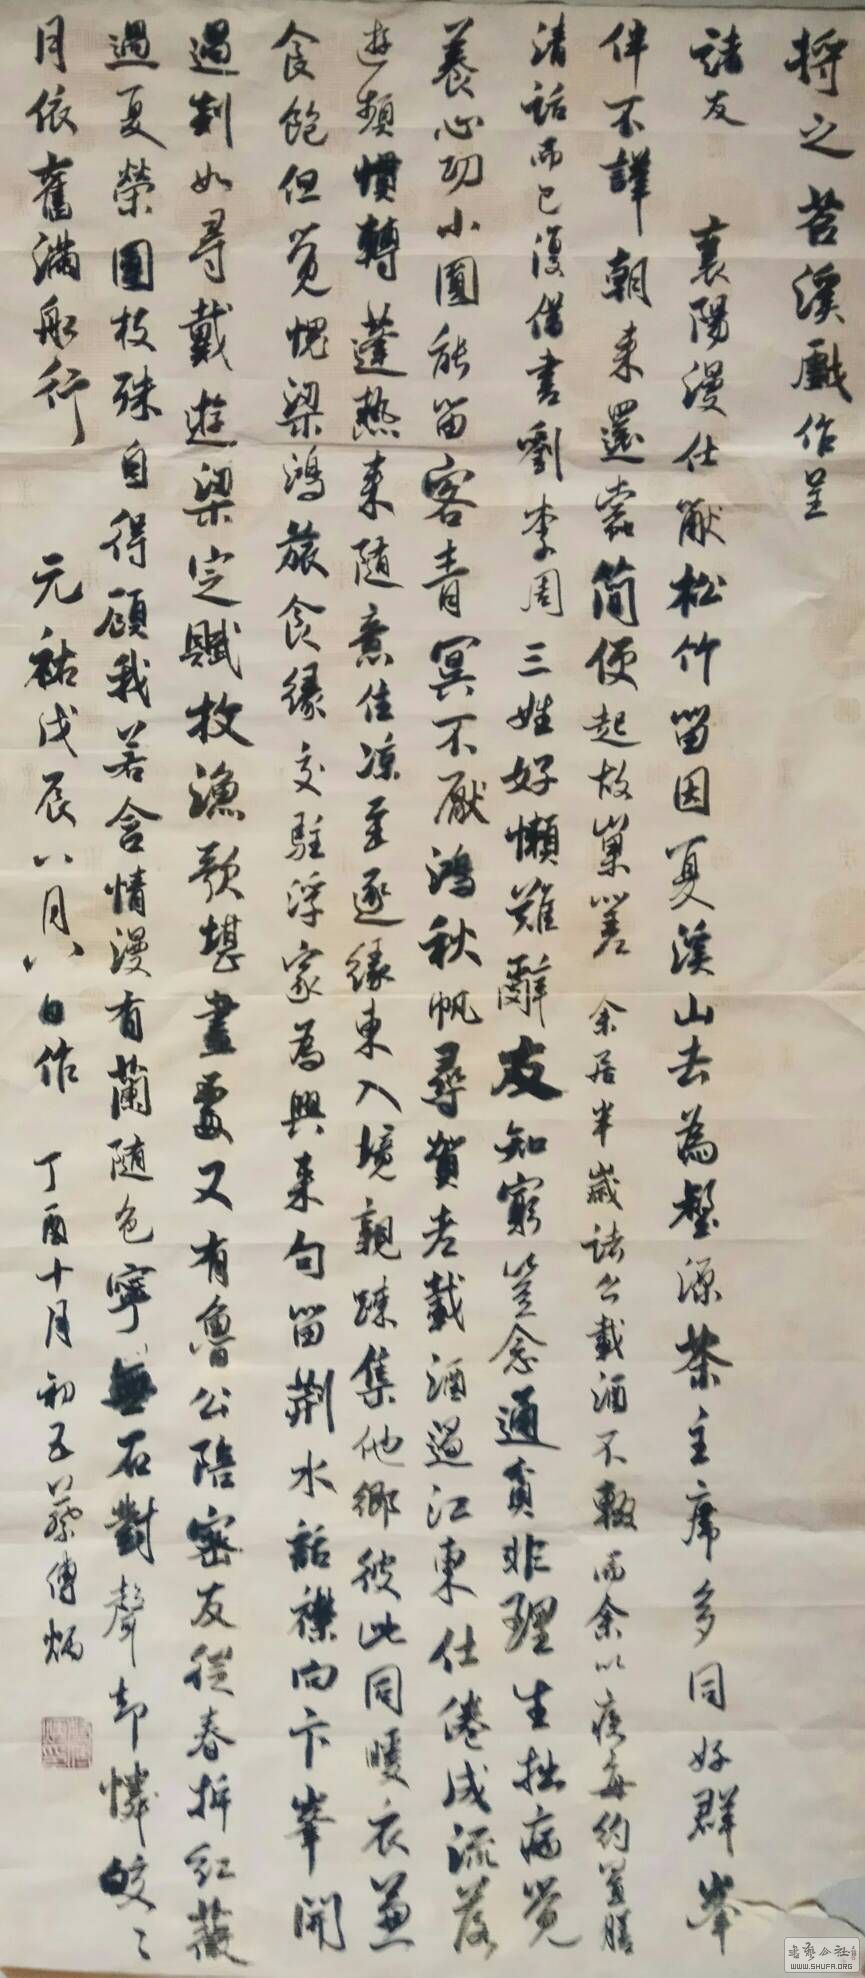 将之苕溪戲作呈
諸友 襄陽漫仕 松竹留因夏溪山去為秋源茶主席多同好群峯
伴不譁朝来還蠹簡便起故巢嗟 余居半歲諸公載酒不輟而余以疾每約置膳
清話而已復借書劉李周三姓 好懶難辭友知窮豈念通貧非理生拙病覺
養心功小圃能留客青冥不厭鴻秋帆尋賀老載酒過江東仕倦成流落
遊頻慣轉蓬熱来随意住凉至逐緣東入境親疎集他鄉彼此同暖衣兼
食飽但覺愧梁鴻旅食緣交駐浮家為興来句留荆水話襟向卞峯開
過剡如尋戴遊梁定賦枚漁歌堪畫處又有魯公陪密友從春拆紅薇
過夏榮團枝殊自得顧我若含情漫有蘭随色寧無石對聲却憐皎〻
月依舊滿船行 元祐戊辰八月八日作 丁酉十月初五蔡傳炳
書藝公社
WWW.SHUFA.ORG